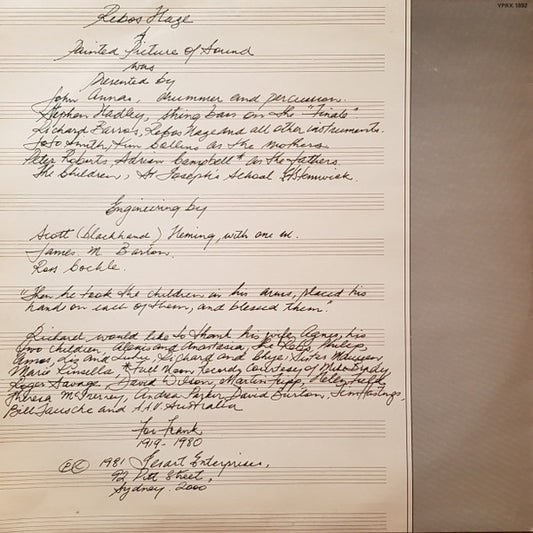 YPRX 1892
Rebos Haze
A
Painted Picture of Sound
was
Presented by
John Annas, drummer and percussion.
Stephen Hadley, string bass on the "Finale".
Richard Farros, Rebos Haze and all other instruments.
JoJo Smith, Kim Collins as the Mothers
Peter Roberts, Adrian Campbell* as the fathers.
The Children, St Joseph's School
Engineering by
Scott (blackhand) Heming, with one m.
James M. Barton.
Ross Cockle.
"Then he took the children in his arms, placed his
hands on each of them, and blessed them".
Richard, would like to thank his wife Agnes, his
two children, and Anastasia, Philip,
Amos, Liz and Luke, Richard and Sister
Marie Kinsella * Full Moon Records Courtesy of
Roger Savage, David Wilson, Martin Tripp, Helen
Theresa McInerney, Andrea Parker, David Burton, Jim Hastings,
Bill and A.A.V Australia
For Frank
1919 - 1980
℗© 1981 Enterprises,
92 Pitt Street,
Sydney. 2000